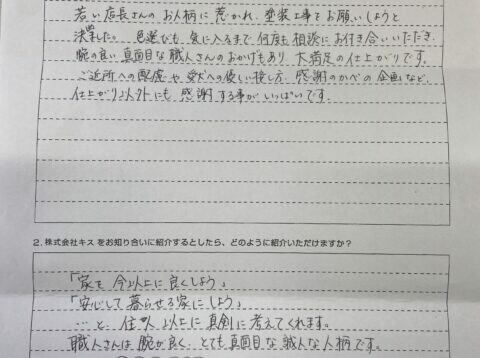 若い店長さんのお人柄に惹かれ、塗装工事をお願いしようと
決心した。色選びも、気に入るまで何度も相談にお付き合いいただき、
腕の良い真面目な職人さんのおかげもあり、大満足の仕上がりです。
ご近所への配慮や愛犬への優しい接し方、感謝のかべの企画など、
仕上がり以外にも感謝する事がいっぱいです。
2. 株式会社キス をお知り合いに紹介するとしたら、どのように紹介いただけますか?
「家を今以上に良くしよう」
「安心して暮らせる家にしよう」
…と、住人以上に真剣に考えてくれます。
職人さんは腕が良く、とても真面目な誠人な人柄です。